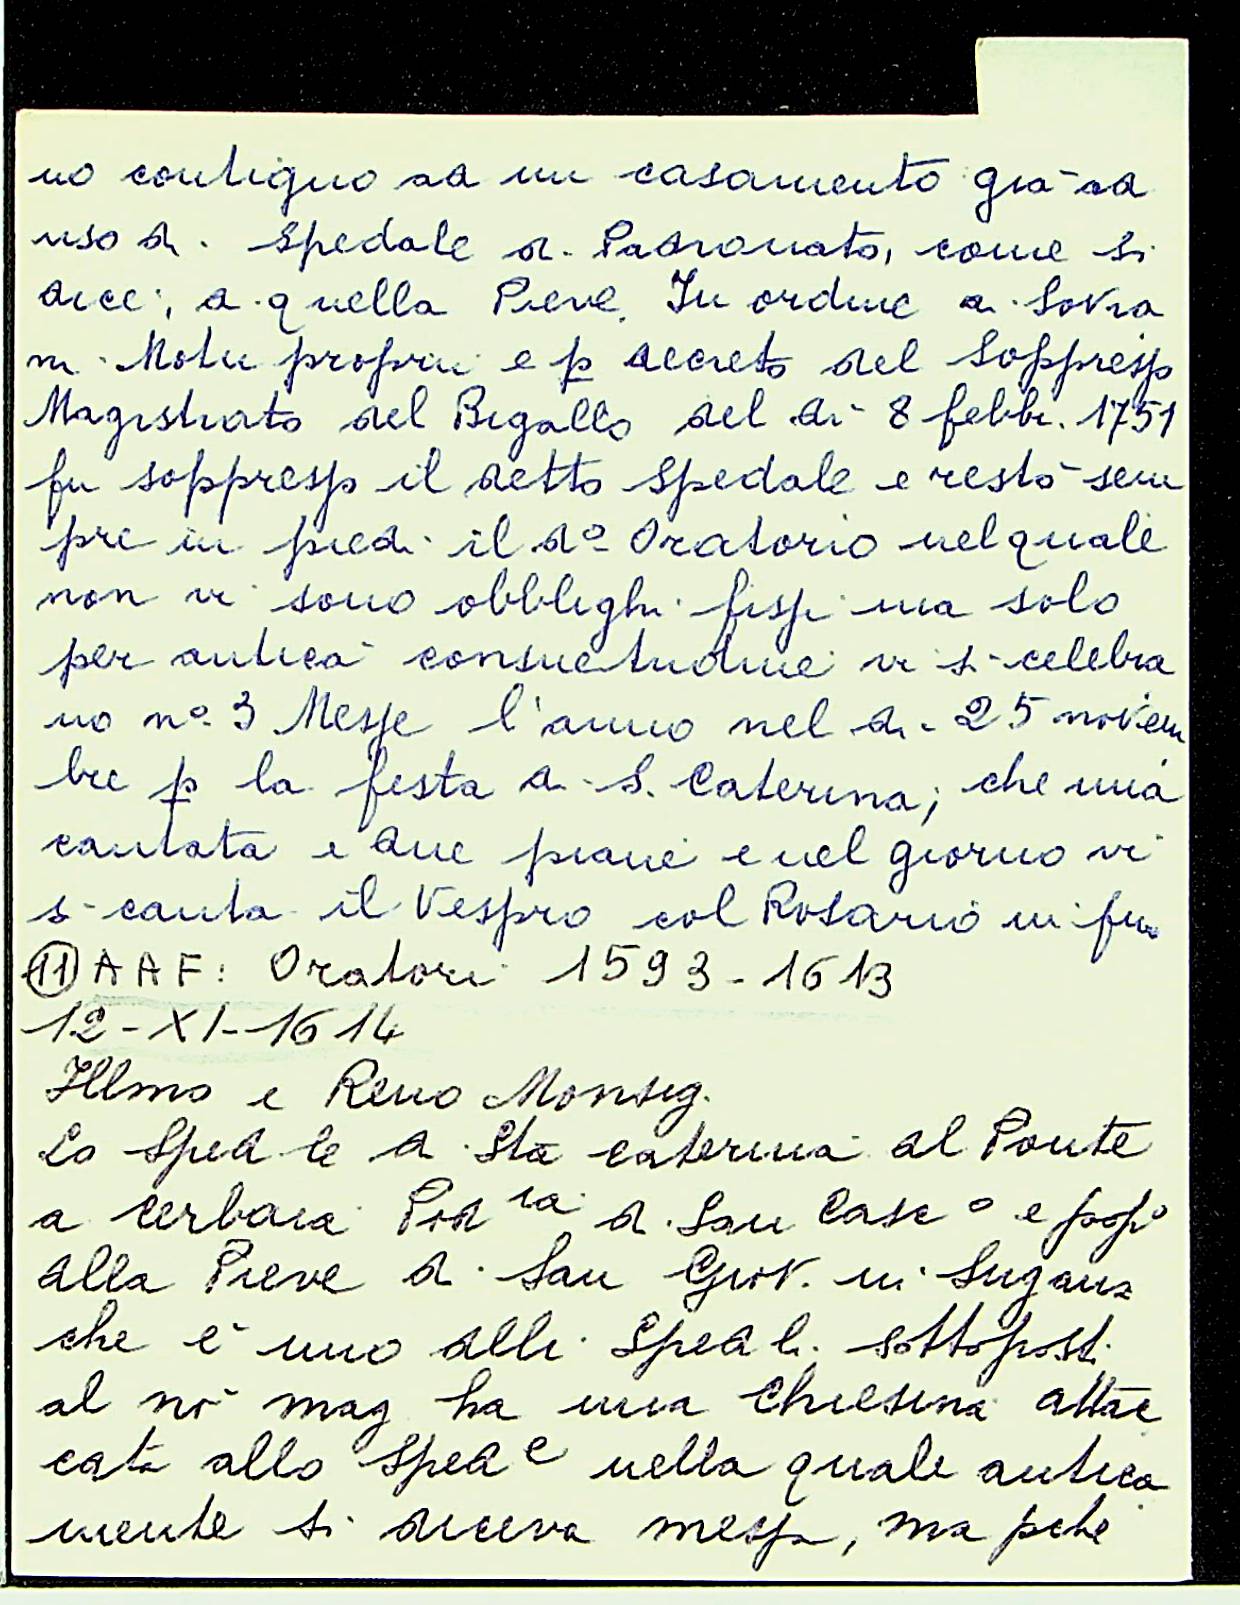 no contiguo ad un casamento già ad
uso di Spedale di Padronato, come si
dice, di quella Pieve. In ordine ai Sovra
ni Motu proprii e p decreto del Soppresso
Magistrato del Bigallo del dì 8 febbr. 1751
fu soppresso il detto Spedale e restò sem
pre in piedi il do Oratorio nel quale
non vi sono obblighi fissi ma solo
per antica consuetudine vi si celebra
no no 3 Messe l'anno nel dì 25 novem
bre p la festa di S. Caterina; che una
cantata e due piane e nel giorno vi
si canta il Vespro col Rosario in fine
(11) AAF: Oratori 1593-1613
12-XI-1614
Illmo e Reno Monsig.
Lo Spedle di Sta Caterina al Ponte
a Cerbaia Podria di San Casco e popo
alla Pieve di San Giov. in Sugana
che è uno delli Spedali sottoposti
al nò mag ha una Chiesina attac
cata allo Spede nella quale antica
mente si diceva messa, ma pchè